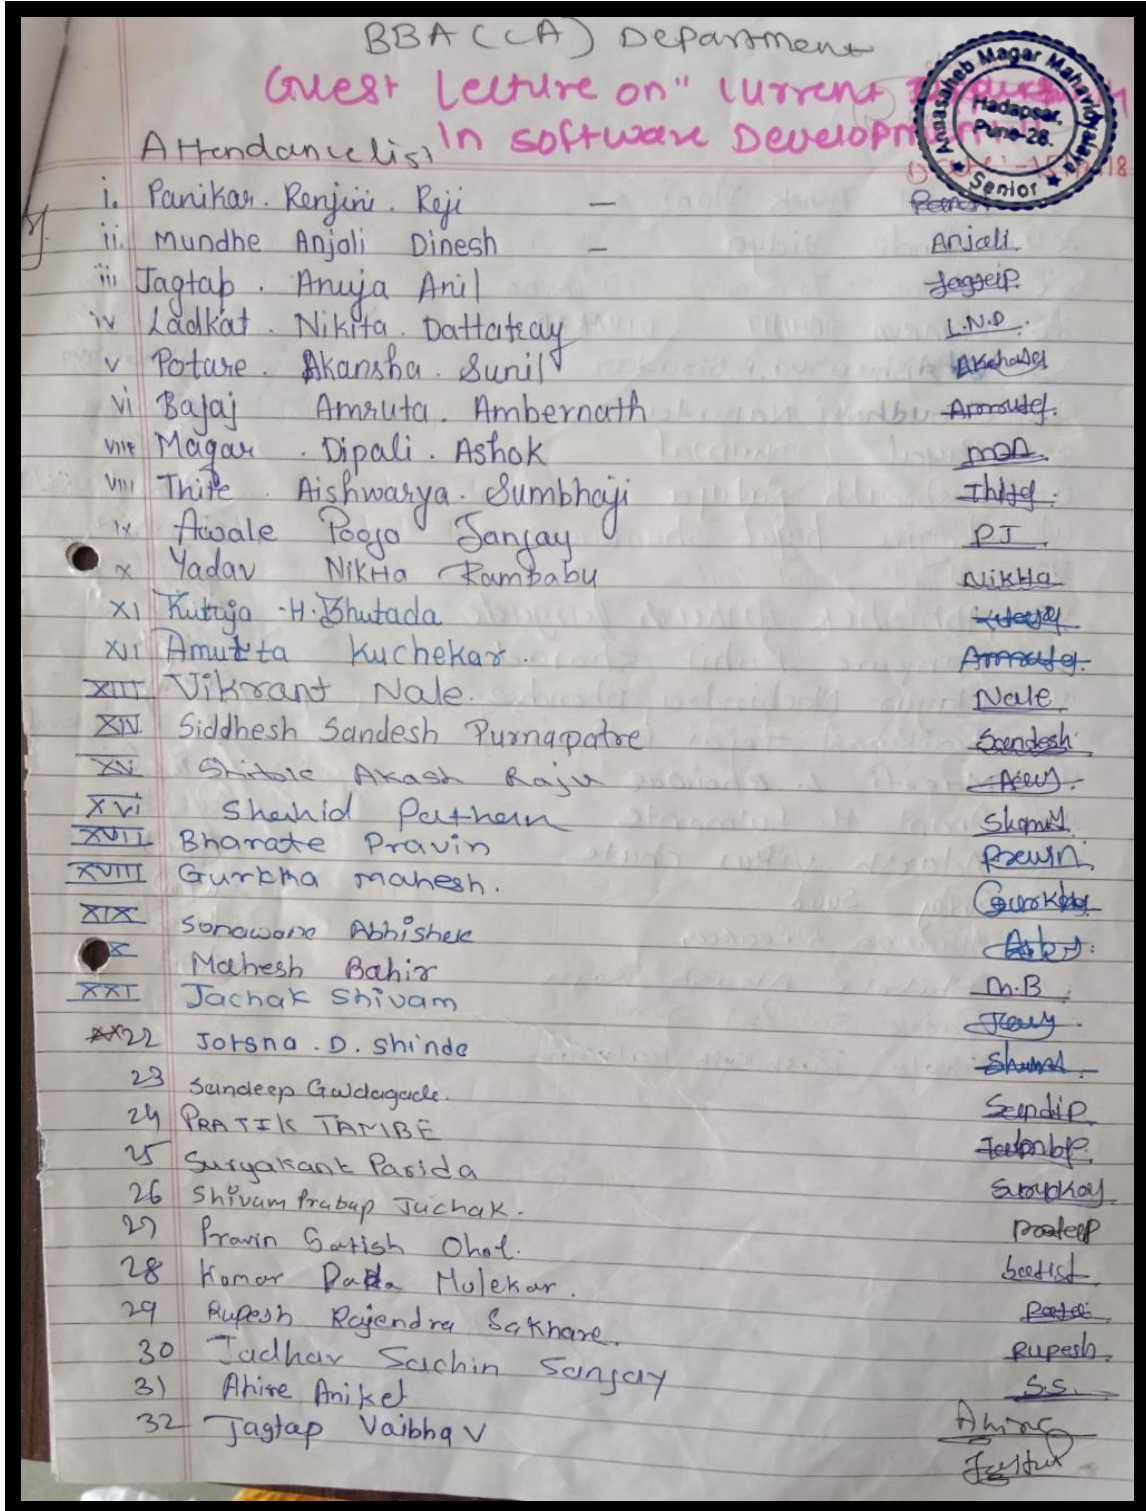 BBA (CA) Department
Guest Lecture on "Current
In Software Development"
Annasaheb Magar Mahavidyalaya
Hadapsar,
Pune-28.
Senior
Attendance list
i. Panikar. Renjini. Reji —
ii. Mundhe Anjali Dinesh — Anjali.
iii Jagtap. Anuja Anil
iv Ladkat. Nikita. Dattatray L.N.D.
v Potare. Akansha. Sunil
vi Bajaj Amruta. Ambernath
Magar. Dipali. Ashok
VIII Thite. Aishwarya. Sumbhaji
ix Awale Pooja Sanjay
x Yadav Nikita Rambabu Nikita
XI Rutuja H. Bhutada
XII Amrutta Kuchekar.
XIII Vikrant Nale. Nale
XIV Siddhesh Sandesh Purnapatre Sandesh
XV Shitole Akash Raju
XVi Shahid Pathan
XVII Bharate Pravin
XVIII Gurkha Mahesh.
XIX Sonawane Abhishek
X Mahesh Bahir M.B
XXI Jachak Shivam
22 Jotsna. D. Shinde
23 Sandeep Gaidagade. Sandip
24 PRATIK TAMBE
25 Suryakant Parida
26 Shivam Pratap Jachak.
27 Pravin Satish Ohol.
28 Komar Dada Mulekar.
29 Rupesh Rajendra Sakhare.
30 Jadhav Sachin Sanjay Rupesh.
31 Ahire Aniket S.S.
32 Jagtap Vaibhav